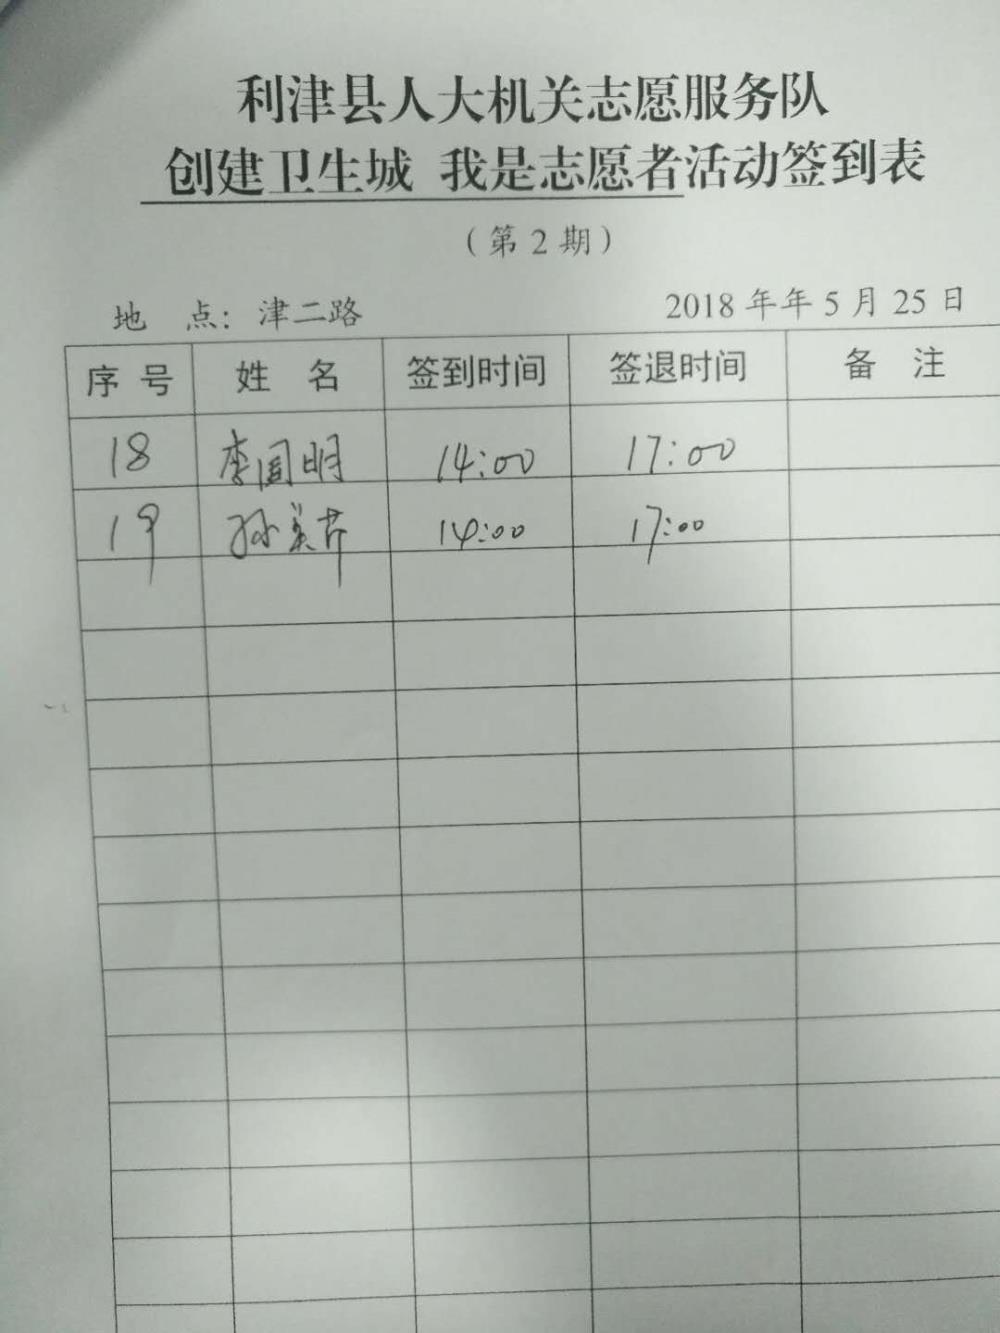 利津县人大机关志愿服务队
创建卫生城 我是志愿者活动签到表
（第 2 期）
地 点：津二路 2018 年年 5 月 25 日
序 号 姓 名 签到时间 签退时间 备 注
18 李国明 14:00 17:00
19 孙美芹 14:00 17:00